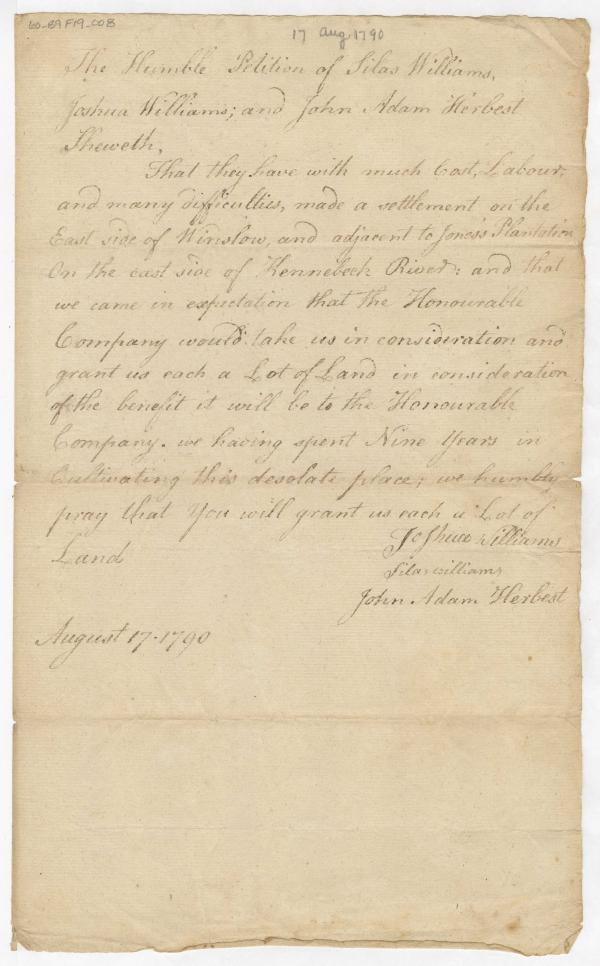 60_B9F19_008
17 Aug 1790
The Humble Petition of Silas Williams,
Joshua Williams; and John Adam Herbest
Sheweth,
That they have with much Cost, Labour,
and many difficulties, made a settlement on the
East side of Winslow, and adjacent to Jones's Plantation
On the east side of Kennebeck River: and that
we came in expectation that the Honourable
Company would take us in consideration and
grant us each a Lot of Land in consideration
of the benefit it will be to the Honourable
Company. we having spent Nine Years in
Cultivating this desolate place; we humbly
pray that You will grant us each a Lot of
Land
Joshua Williams
Silas williams
John Adam Herbest
August 17-1790